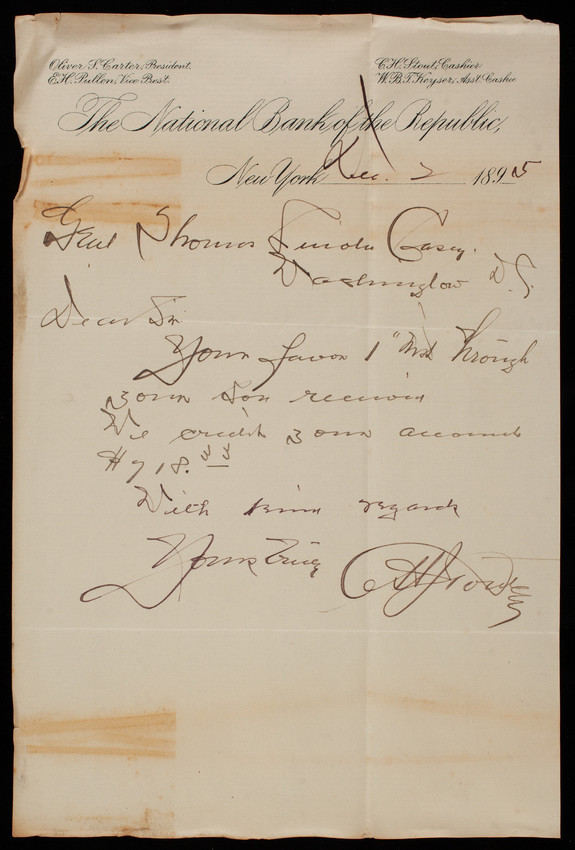 Oliver S. Carter, President.
E.H. Pullen, Vice Prest.
C.H. Stout, Cashier
W.B.T. Keyser, Asst Cashr
The National Bank of the Republic,
New York, Dec. 2 1895
Genl Thomas Lincoln Casey.
Washington D.C.
Dear Sir
Your favor 1" Inst through
your Son received
We credit your account
$718.
With kind regards
Yours truly
C H Stout